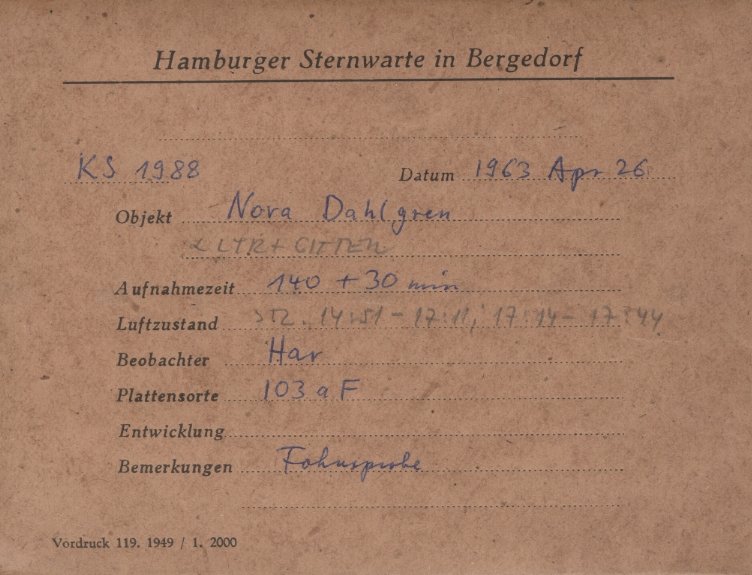 Hamburger Sternwarte in Bergedorf
KS 1988 Datum 1963 Apr 26
Objekt Nova Dahlgren
α LYR + GITTER
Aufnahmezeit 140 + 30 min
Luftzustand 14:51 - 17:11, 17:14 - 17:44
Beobachter Har
Plattensorte 103 a F
Entwicklung
Bemerkungen
Vordruck 119. 1949 / 1. 2000